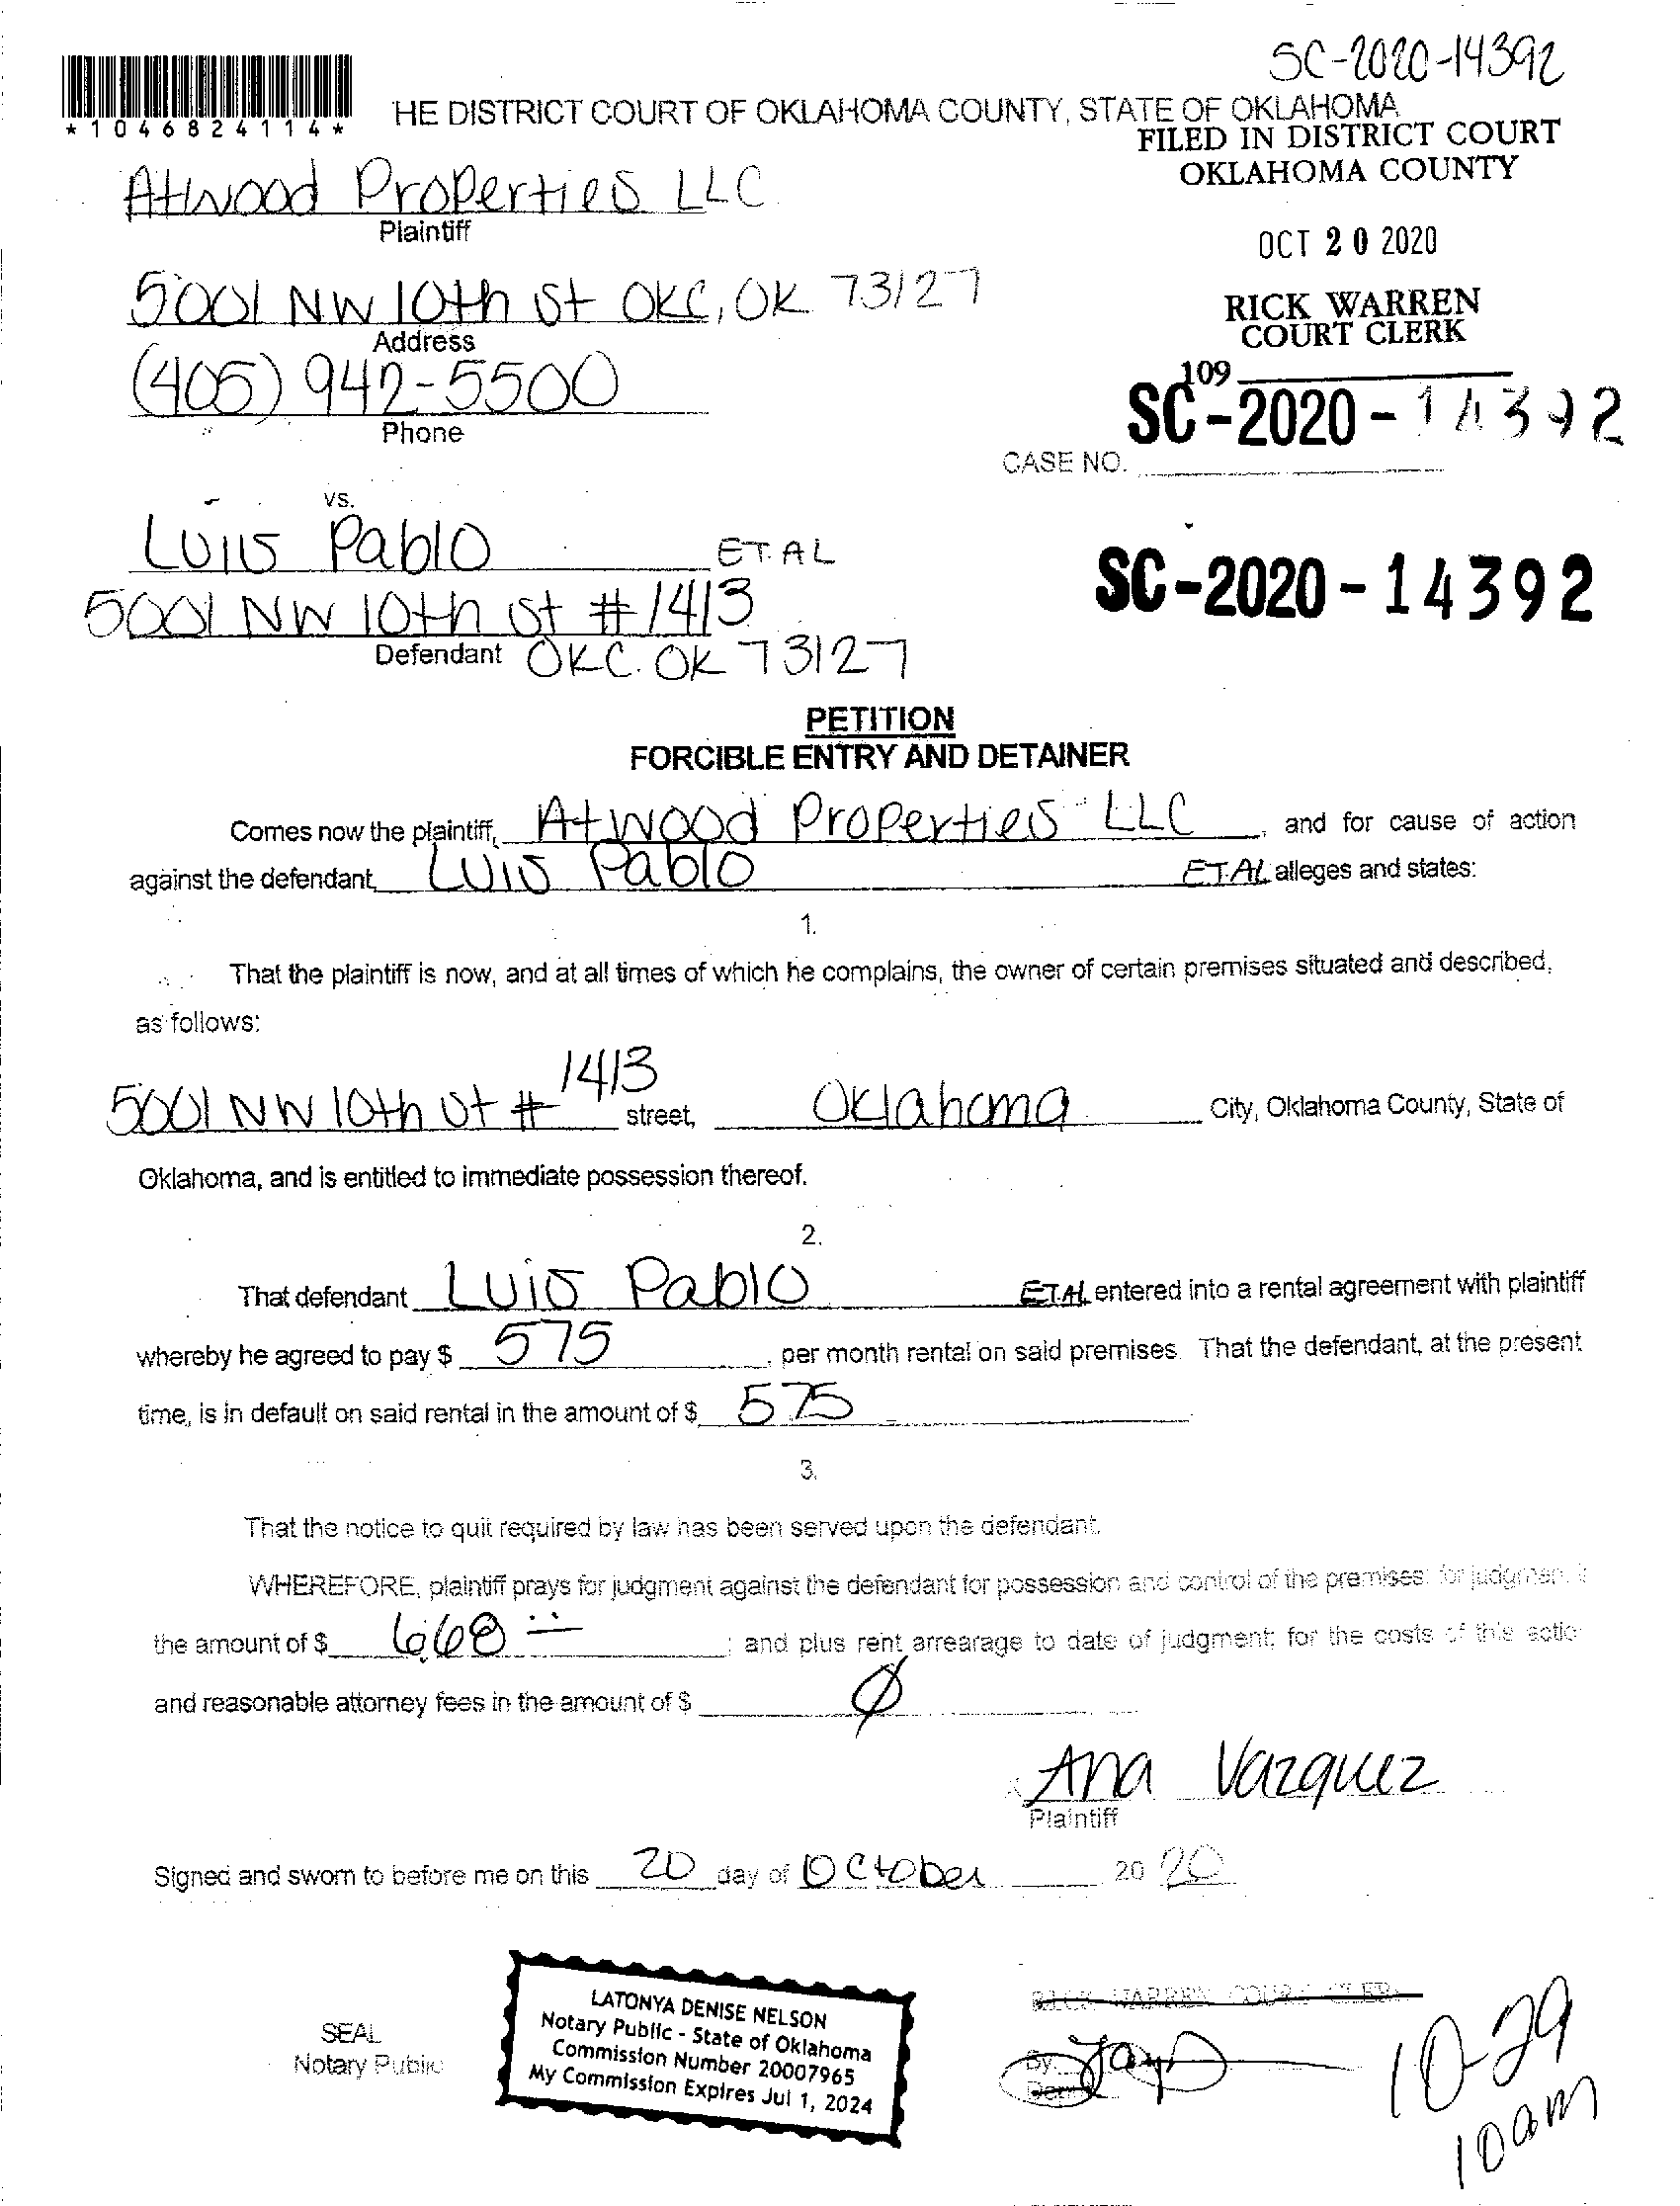 SC-2020-14392
*1046824114*
HE DISTRICT COURT OF OKLAHOMA COUNTY, STATE OF OKLAHOMA
FILED IN DISTRICT COURT
OKLAHOMA COUNTY
Atwood Properties LLC
Plaintiff
OCT 20 2020
5001 NW 10th St OKC, OK 73127
Address
RICK WARREN
COURT CLERK
(405) 942-5500
Phone
109
SC-2020-14392
CASE NO.
vs.
Luis Pablo ET. AL
5001 NW 10th St #1413
Defendant OKC. OK 73127
SC-2020-14392
PETITION
FORCIBLE ENTRY AND DETAINER
Comes now the plaintiff, Atwood Properties LLC, and for cause of action
against the defendant, Luis Pablo ET.AL alleges and states:
1.
That the plaintiff is now, and at all times of which he complains, the owner of certain premises situated and described,
as follows:
5001 NW 10th St # 1413 street, Oklahoma City, Oklahoma County, State of
Oklahoma, and is entitled to immediate possession thereof.
2.
That defendant Luis Pablo ET.AL entered into a rental agreement with plaintiff
whereby he agreed to pay $ 575, per month rental on said premises. That the defendant, at the present
time, is in default on said rental in the amount of $ 575
3.
That the notice to quit required by law has been served upon the defendant.
WHEREFORE, plaintiff prays for judgment against the defendant for possession and control of the premises; for judgmen
the amount of $ 668 ; and plus rent arrearage to date of judgment; for the costs of this actio
and reasonable attorney fees in the amount of $ Ø
Ana Vazquez
Plaintiff
Signed and sworn to before me on this 20 day of October 20 20
SEAL
Notary Public
LATONYA DENISE NELSON
Notary Public - State of Oklahoma
Commission Number 20007965
My Commission Expires Jul 1, 2024
RICK WARREN COURT CLER
By
10-29
10am